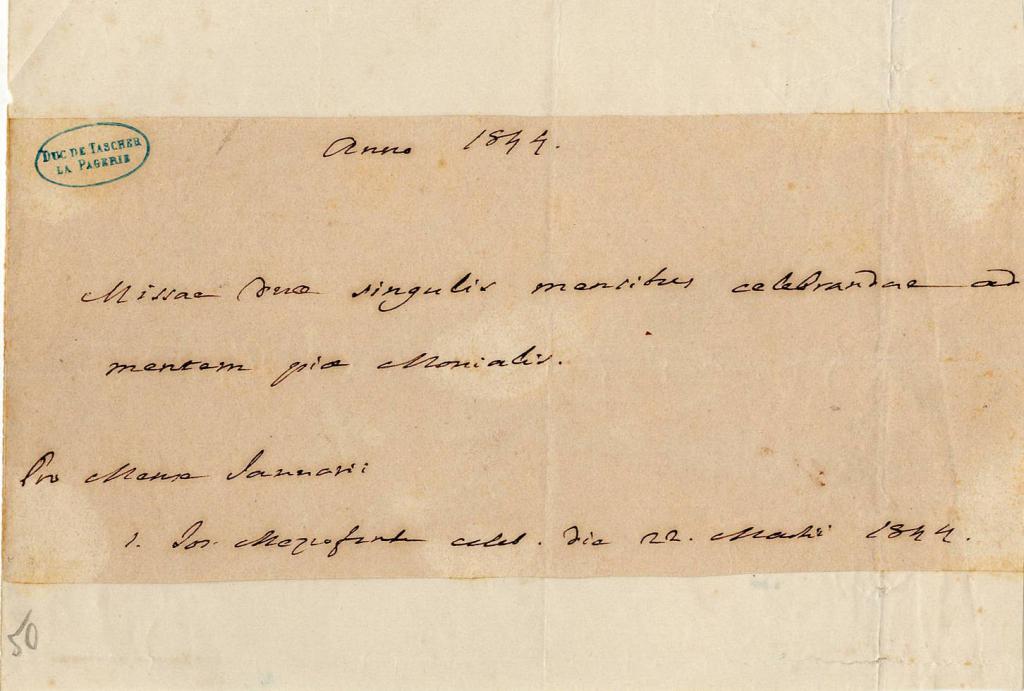 DUC DE TASCHER
LA PAGERIE
Anno 1844.
Missae duae singulis mensibus celebrandae ad
mentem piae Monialis.
Pro Mense Januarii
1. Jos. Mezzofanti celeb. die 22. 1844.
50